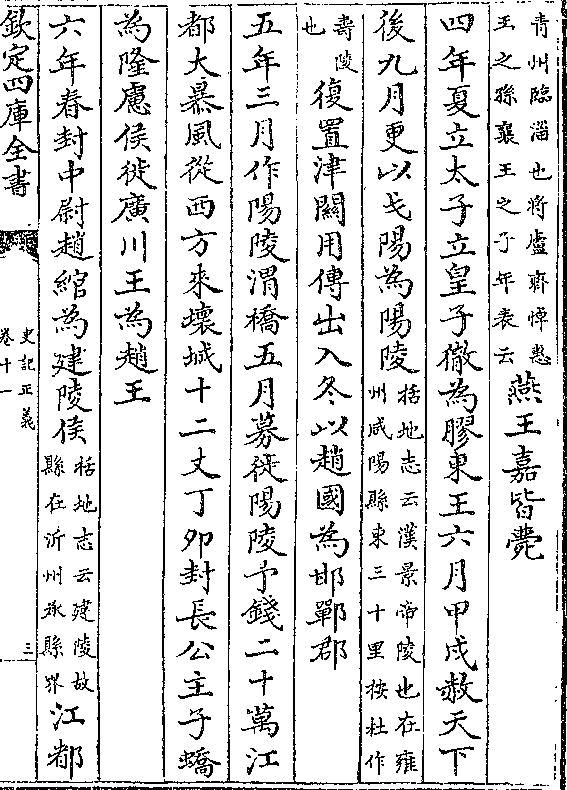 青州臨淄也將盧齊悼惠
王之孫襄王之子年表云
燕王嘉皆薨
四年夏立太子立皇子徹為膠東王六月甲戌赦天下
後九月更以弋陽為陽陵
括地志云漢景帝陵也在雍
州咸陽縣東三十里按杜作
壽陵
也
復置津關用傳出入冬以趙國為邯鄲郡
五年三月作陽陵渭橋五月募徙陽陵予錢二十萬江
都大暴風從西方來壞城十二丈丁卯封長公主子蟜
為隆慮侯徙廣川王為趙王
六年春封中尉趙綰為建陵侯
括地志云建陵故
縣在沂州承縣界
江都
欽定四庫全書
史記正義
卷十一
三